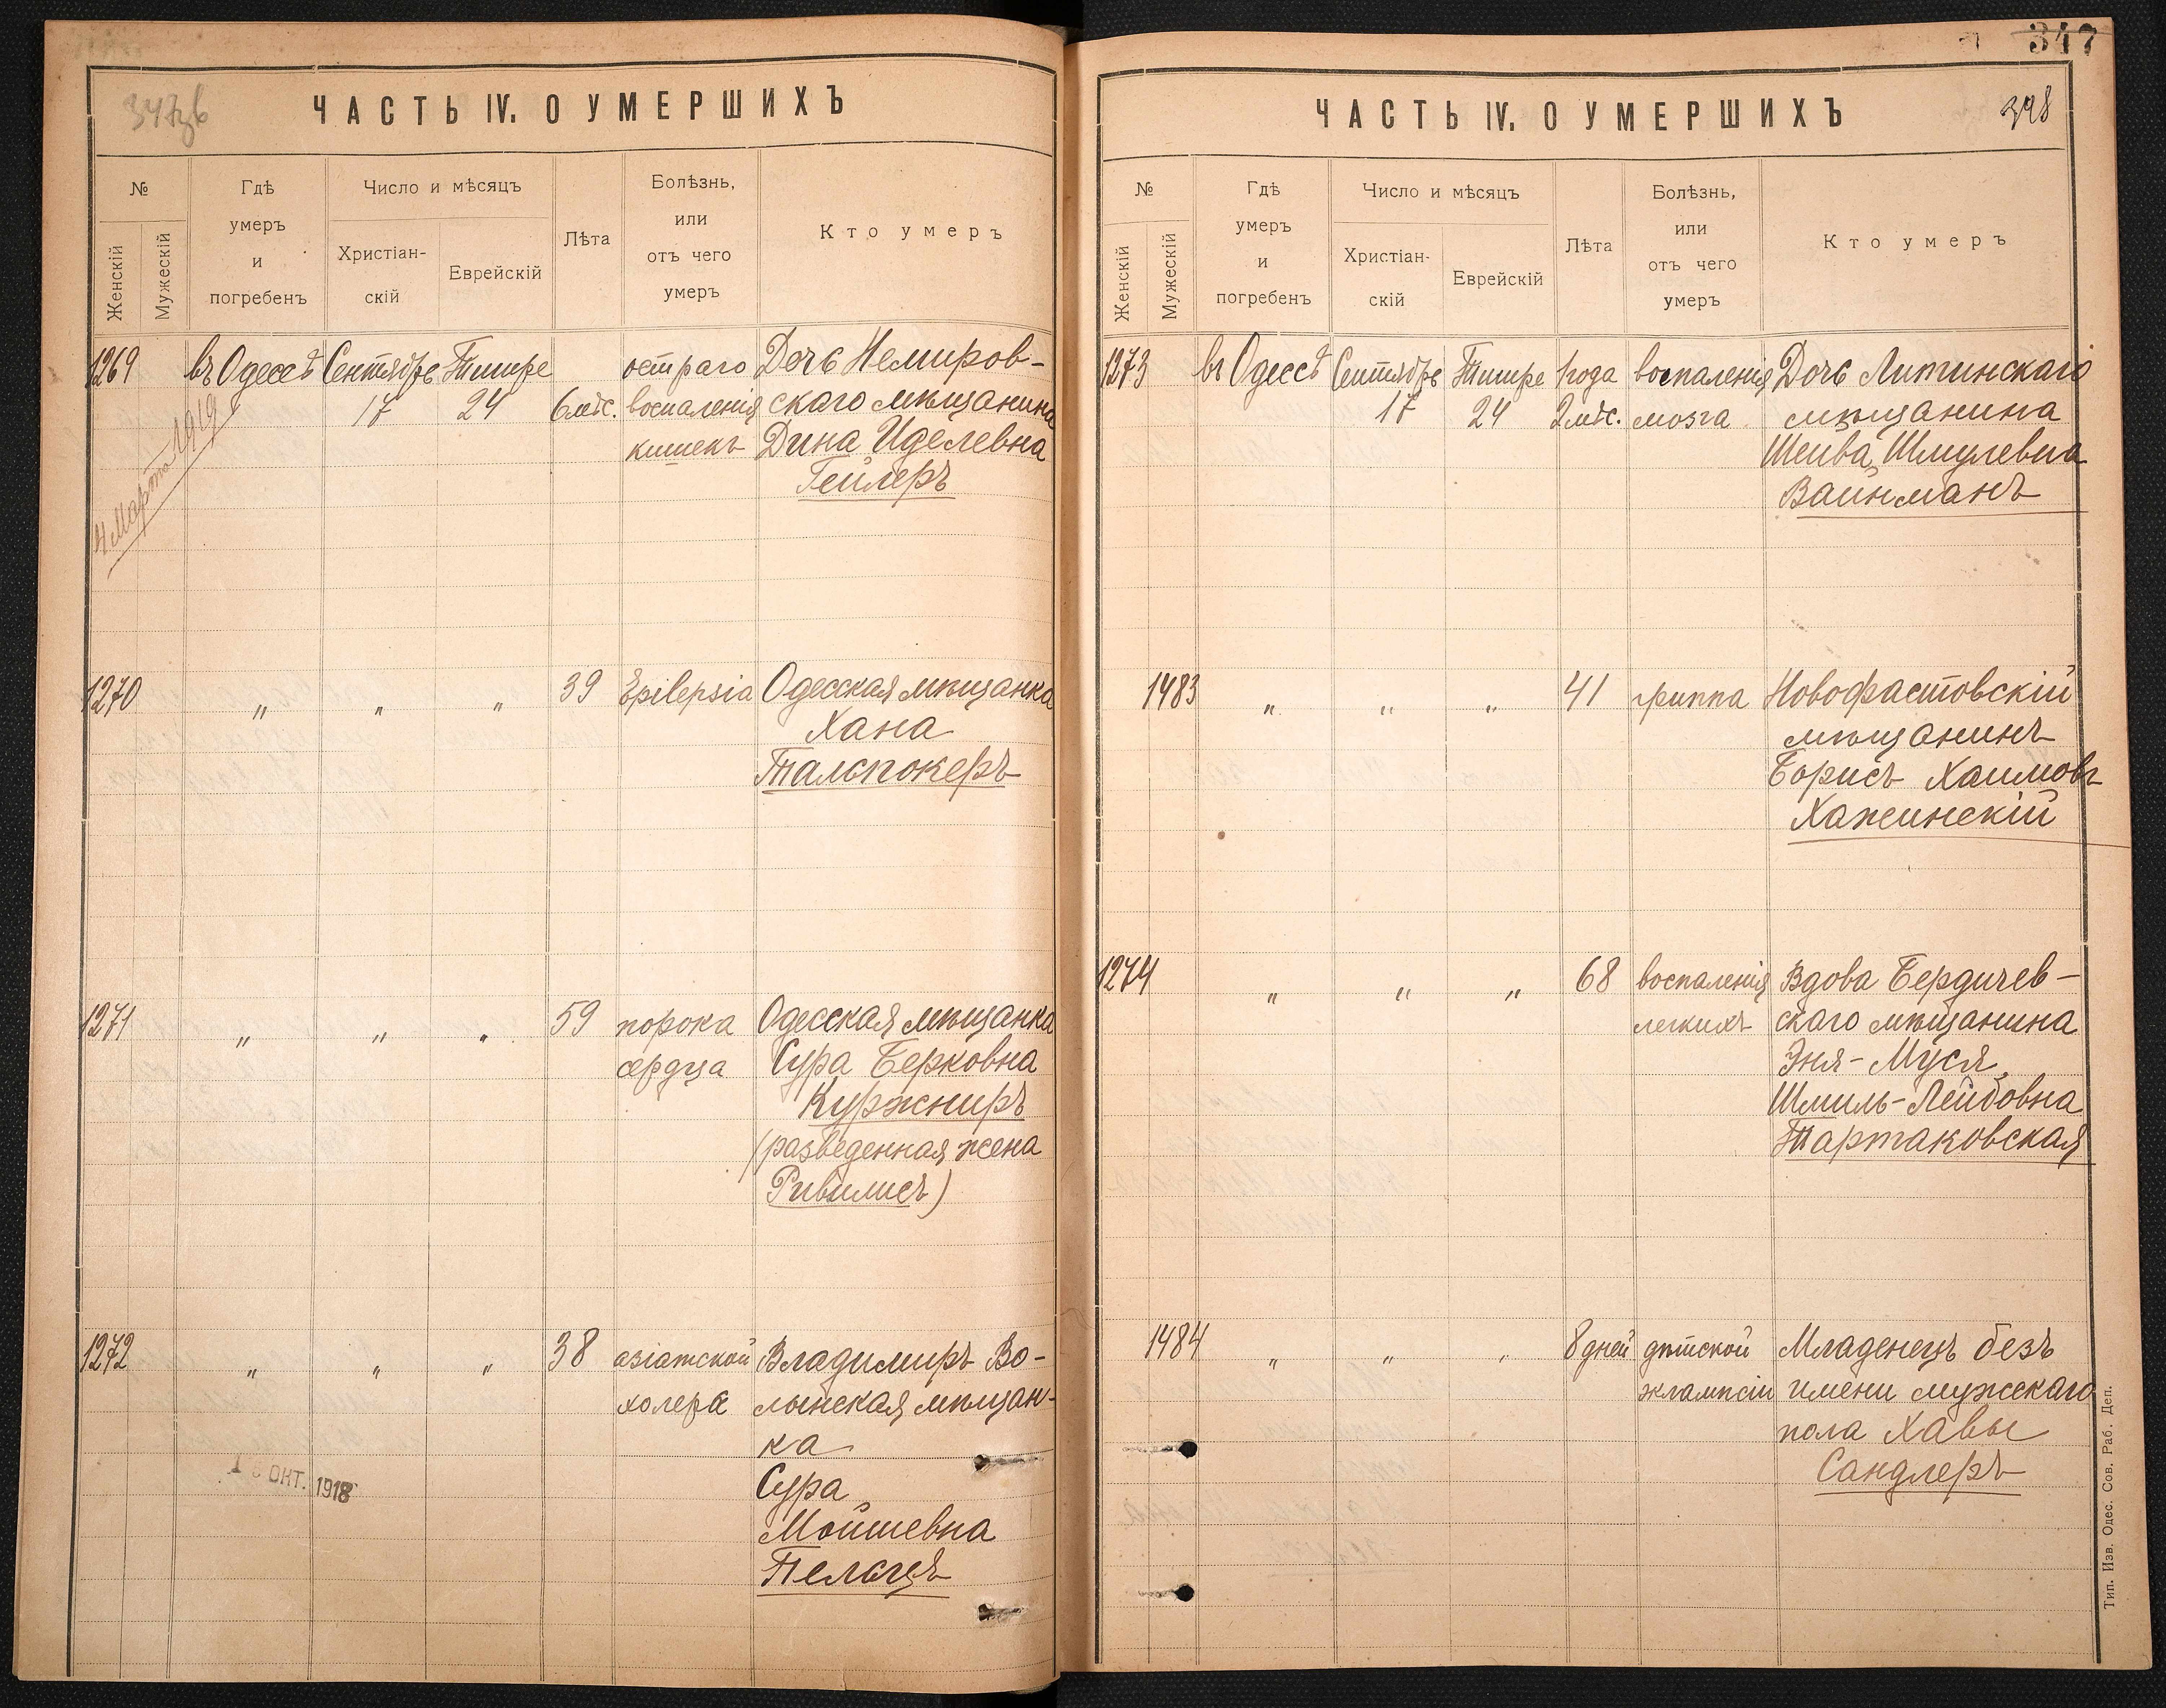 347
347зв
ЧАСТЬ IV. О УМЕРШИХЪ
№
Женскій
Мужескій
Гдѣ
умеръ
и
погребенъ
Число и мѣсяцъ
Христіан-
скій
Еврейскій
Лѣта
Болѣзнь,
или
отъ чего
умеръ
Кто умеръ
1269 въ Одессѣ Сентябрь Тишре остраго Дочь Немиров-
17 24 6 мѣс. воспаленія скаго мѣщанина
кишекъ Дина Иделевна
Гейлеръ
4 Марта 1919
1270 " " " 39 Epilepsia Одесская мѣщанка
Хана
Тальпокеръ
1271 " " " 59 порока Одесская мѣщанка
сердца Сура Берковна
Куржниръ
(разведенная жена
Ривилисъ)
1272 " " " 38 азіатской Владимиръ Во-
холера лынская мѣщан-
ка
Сура
Мойшевна
Пельцъ
1 6 ОКТ. 1918
ЧАСТЬ IV. О УМЕРШИХЪ
398
№
Женскій
Мужескій
Гдѣ
умеръ
и
погребенъ
Число и мѣсяцъ
Христіан-
скій
Еврейскій
Лѣта
Болѣзнь,
или
отъ чего
умеръ
Кто умеръ
1273 въ Одессѣ Сентябрь Тишре 1 года воспаленія Дочь Литинскаго
17 24 2 мѣс. мозга мѣщанина
Шейва Шмулевна
Вайнманъ
1483 " " " 41 гриппа Новофастовскій
мѣщанинъ
Борисъ Хаимовъ
Хажинскій
1274 " " " 68 воспаленія Вдова Бердичев-
легкихъ скаго мѣщанина
Эня-Муся
Шмиль-Лейбовна
Тартаковская
1484 " " " 8 дней дѣтской Младенецъ безъ
эклампсіи имени мужескаго
пола Хавы
Сандлеръ
Тип. Изв. Одес. Сов. Раб. Деп.